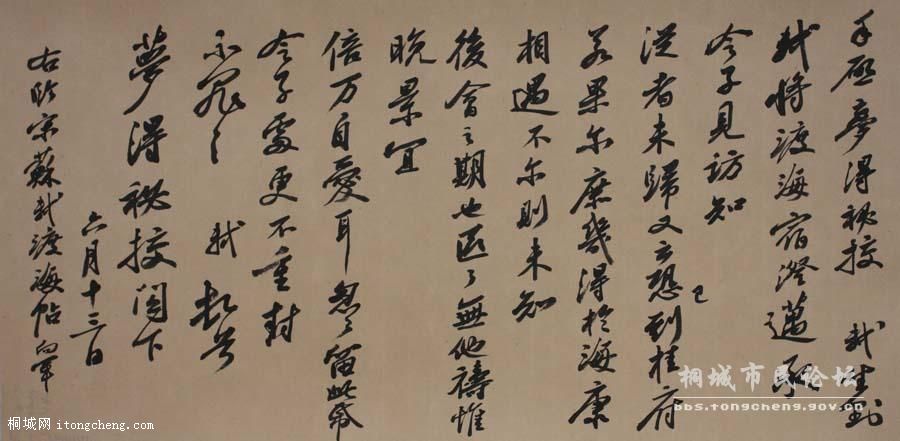 手啟夢得秘校 軾封
軾將渡海宿澄邁承
令子見訪知
從者未歸又云恐已到桂府
若果尔庶幾得於海康
相遇不尔則未知
後會之期也區々無他禱惟
晚景宜
倍万自愛耳忽々留此帋
令子處更不重封
不罪々 軾頓首
夢得秘校閣下
六月十三日
右臨宋蘇軾渡海帖
桐城市民论坛
bbs.tongcheng.gov.cn
桐城网 itongcheng.com